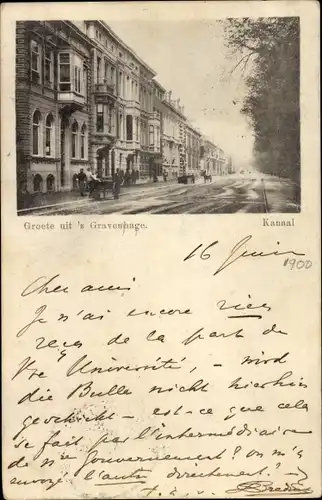 Groete uit 's Gravenhage.
Kanaal
16 Juin
1900
Cher ami
Je n'ai encore rien
reçu de la part de
Vre Université, – wird
die Bulle nicht hierhin
geschickt – est-ce que cela
se fait par l'intermédiaire
de n/s Gouvernement? on m'a
envoyé l'autre directement! –
t. à.